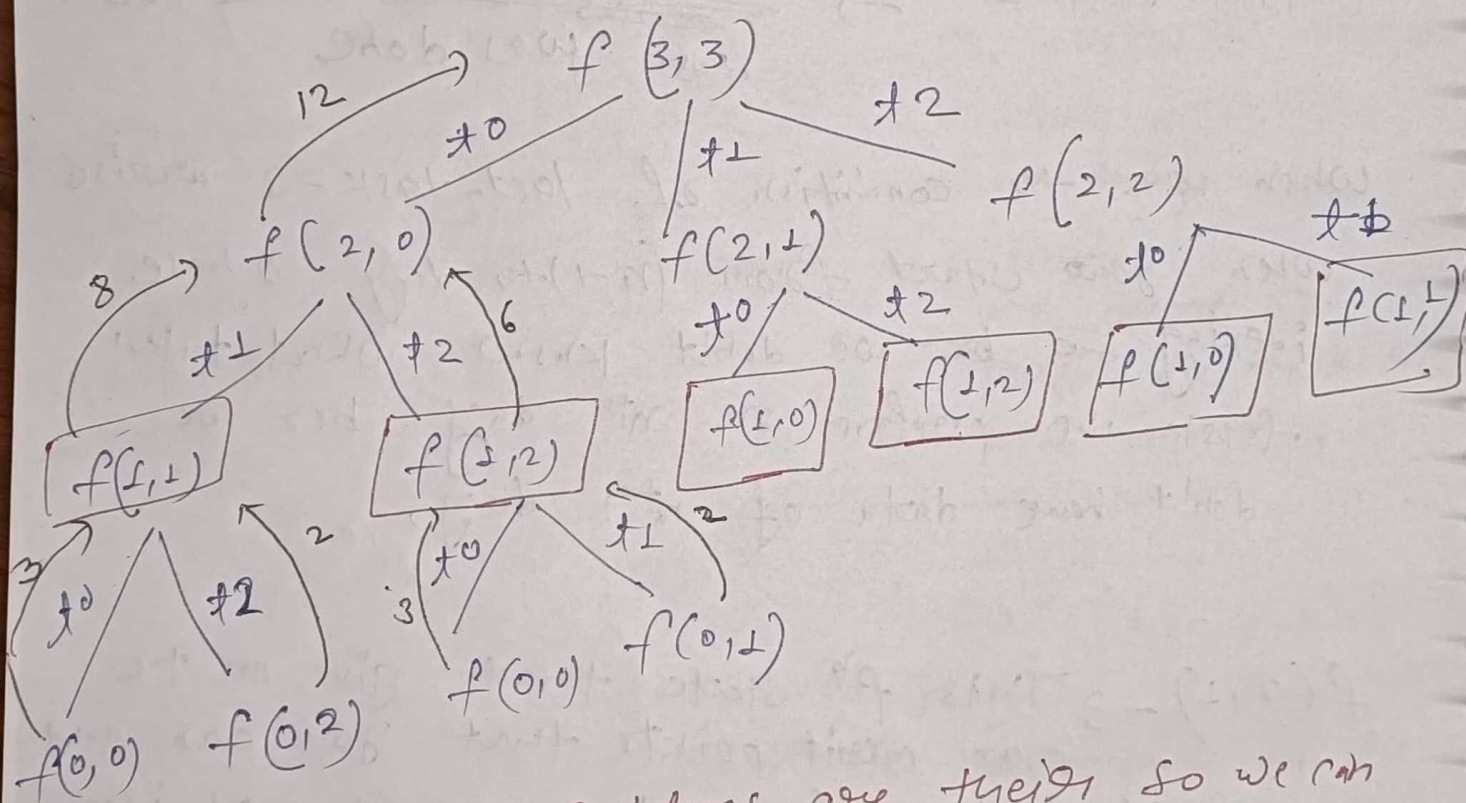 f (3, 3)
12
t0
t1
t2
f(2, 0)
f(2, 1)
f(2, 2)
8
t1
t2
6
t0
t2
t0
f(1, 1)
f(1, 2)
f(1, 0)
f(1, 2)
f(1, 0)
f(1, 1)
3
t0
t2
2
3
t0
t1
2
f(0, 0)
f(0, 2)
f(0, 0)
f(0, 1)
are their so we can